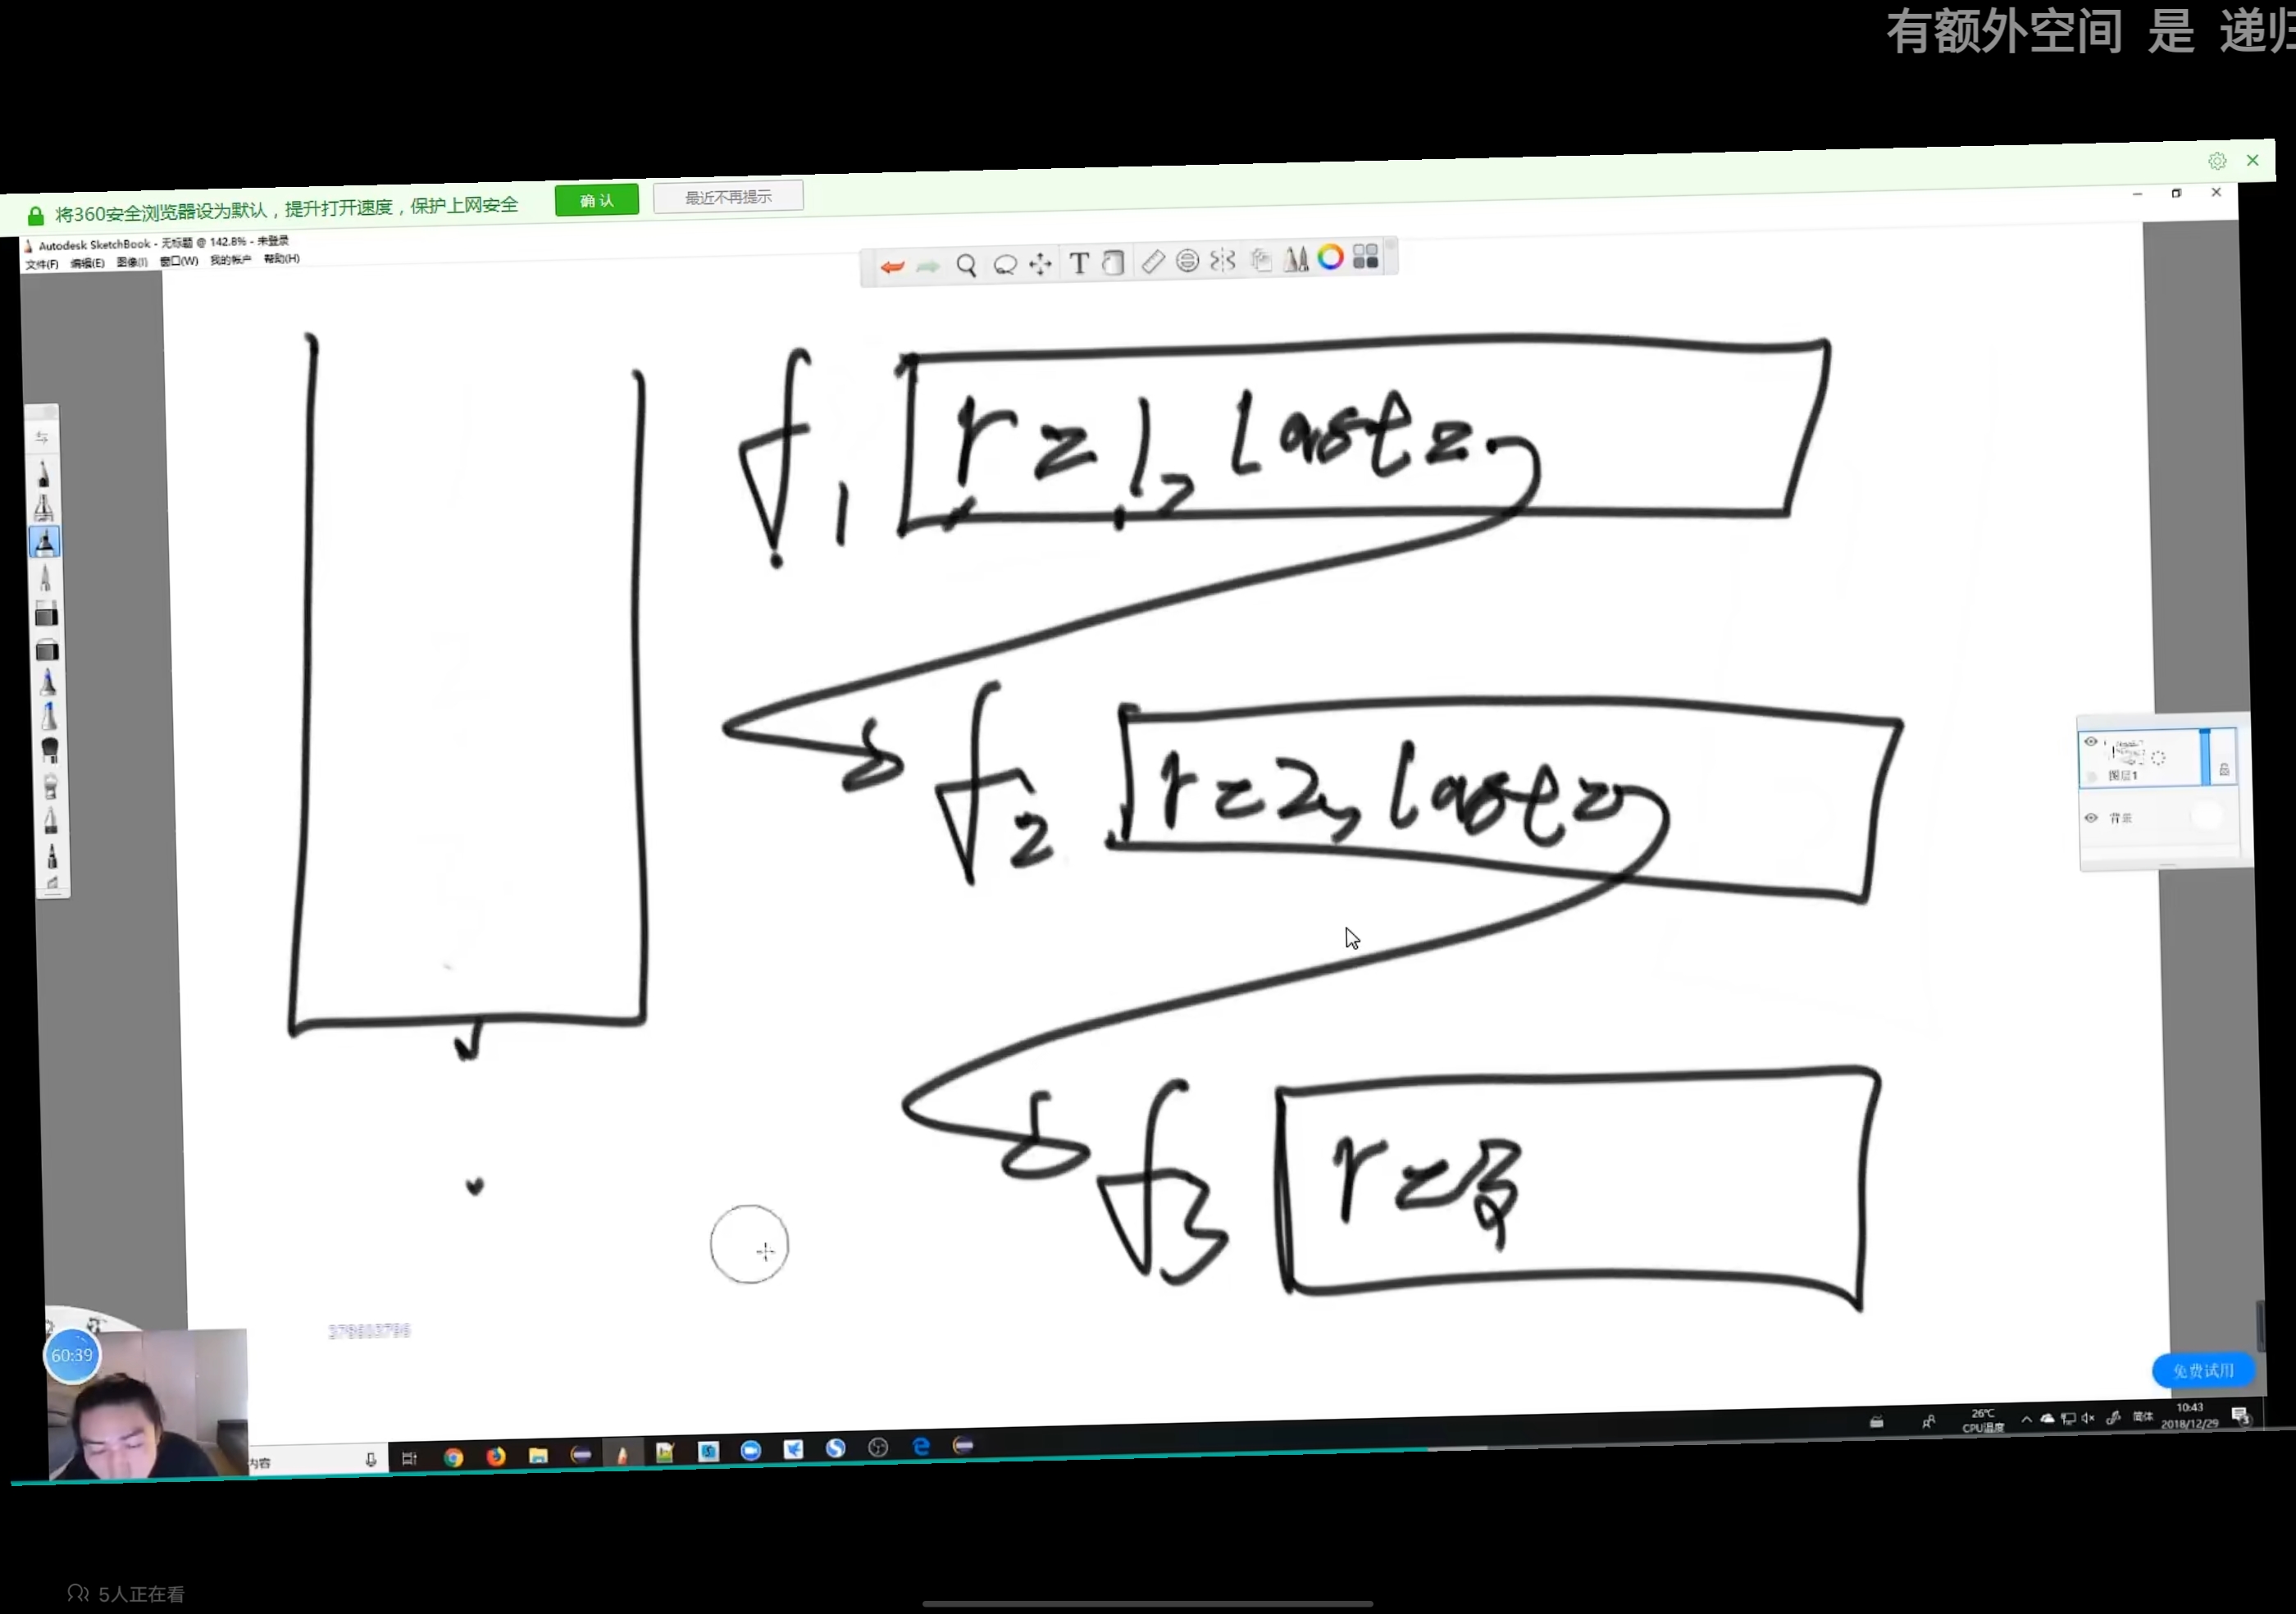 有额外空间 是 递归
将360安全浏览器设为默认，提升打开速度，保护上网安全 确认 最近不再提示
Autodesk SketchBook - 无标题 @ 142.8% - 未登录
文件(F) 编辑(E) 图像(I) 窗口(W) 我的帐户 帮助(H)
T
f1 r=1, last=
f2 r=2, last=
图层1
背景
f3 r=3,
60:39
免费试用
内容
26℃
CPU温度
简体
10:43
2018/12/29
3
5人正在看